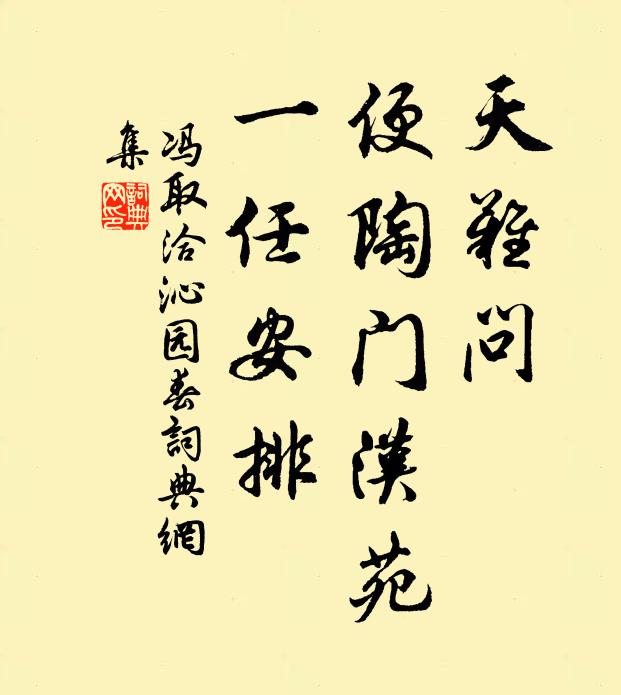 天難问
便陶门漢苑
一任安排
冯取洽沁园春詞典網
集
詞典网印